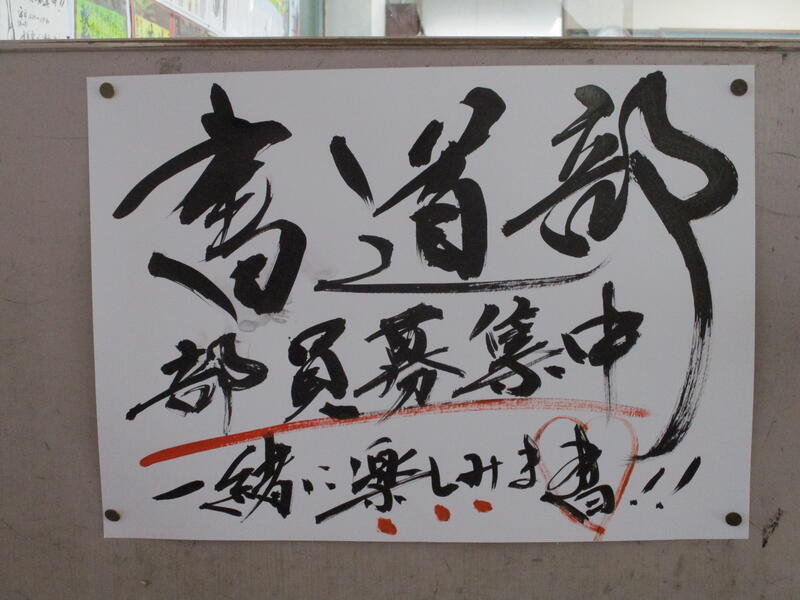 書道部
部員募集中
一緒に楽しみま書!!